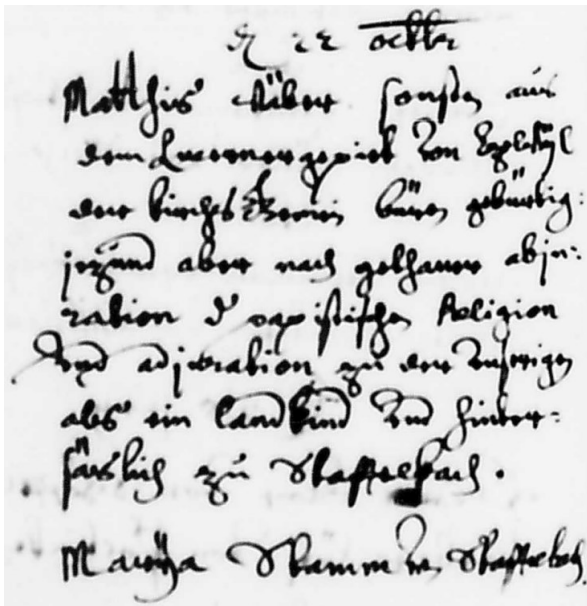 d 22 octbr
Matthis Wäber sonsten aus
dem Lucernergepiet von
der kirchs Gmein büren gebürtig:
jezund aber nach gethaner abju:
ration d papistischen Religion
und adjuration zu der unserigen
als ein landkind und hinder:
säslich zu Staffelbach.
Maria Stamm von Staffelbach